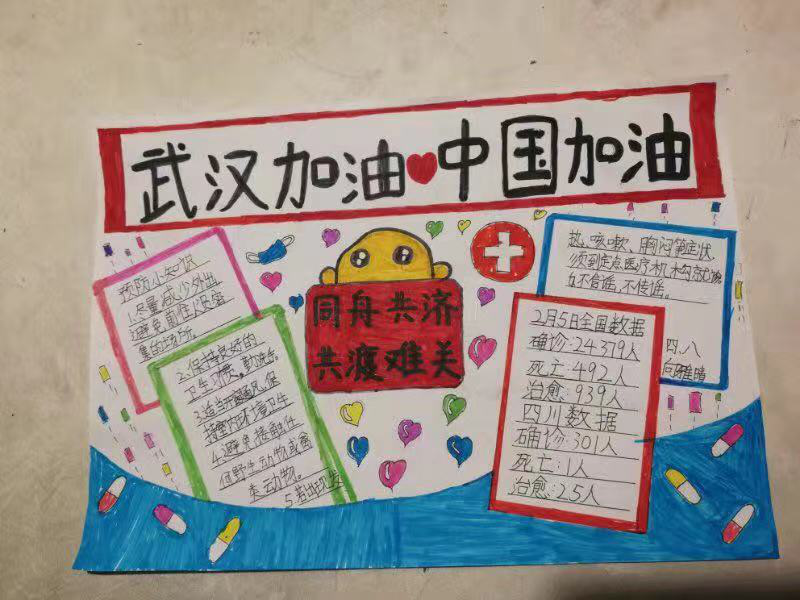 武汉加油中国加油
预防小知识
1.尽量减少外出
避免前往人员密
集的场所。
2.保持良好的
卫生习惯。勤洗手。
3.适当开窗通风,保
持室内环境卫生
4.避免接触任
何野生动物或禽
类动物。
5.若出现发
热、咳嗽、胸闷等症状,
须到定点医疗机构就诊
6.不信谣,不传谣。
同舟共济
共渡难关
2月5日全国数据
确诊:24379人
死亡:492人
治愈:939人
四川数据
确诊:301人
死亡:1人
治愈:25人
四、八
向雅晴